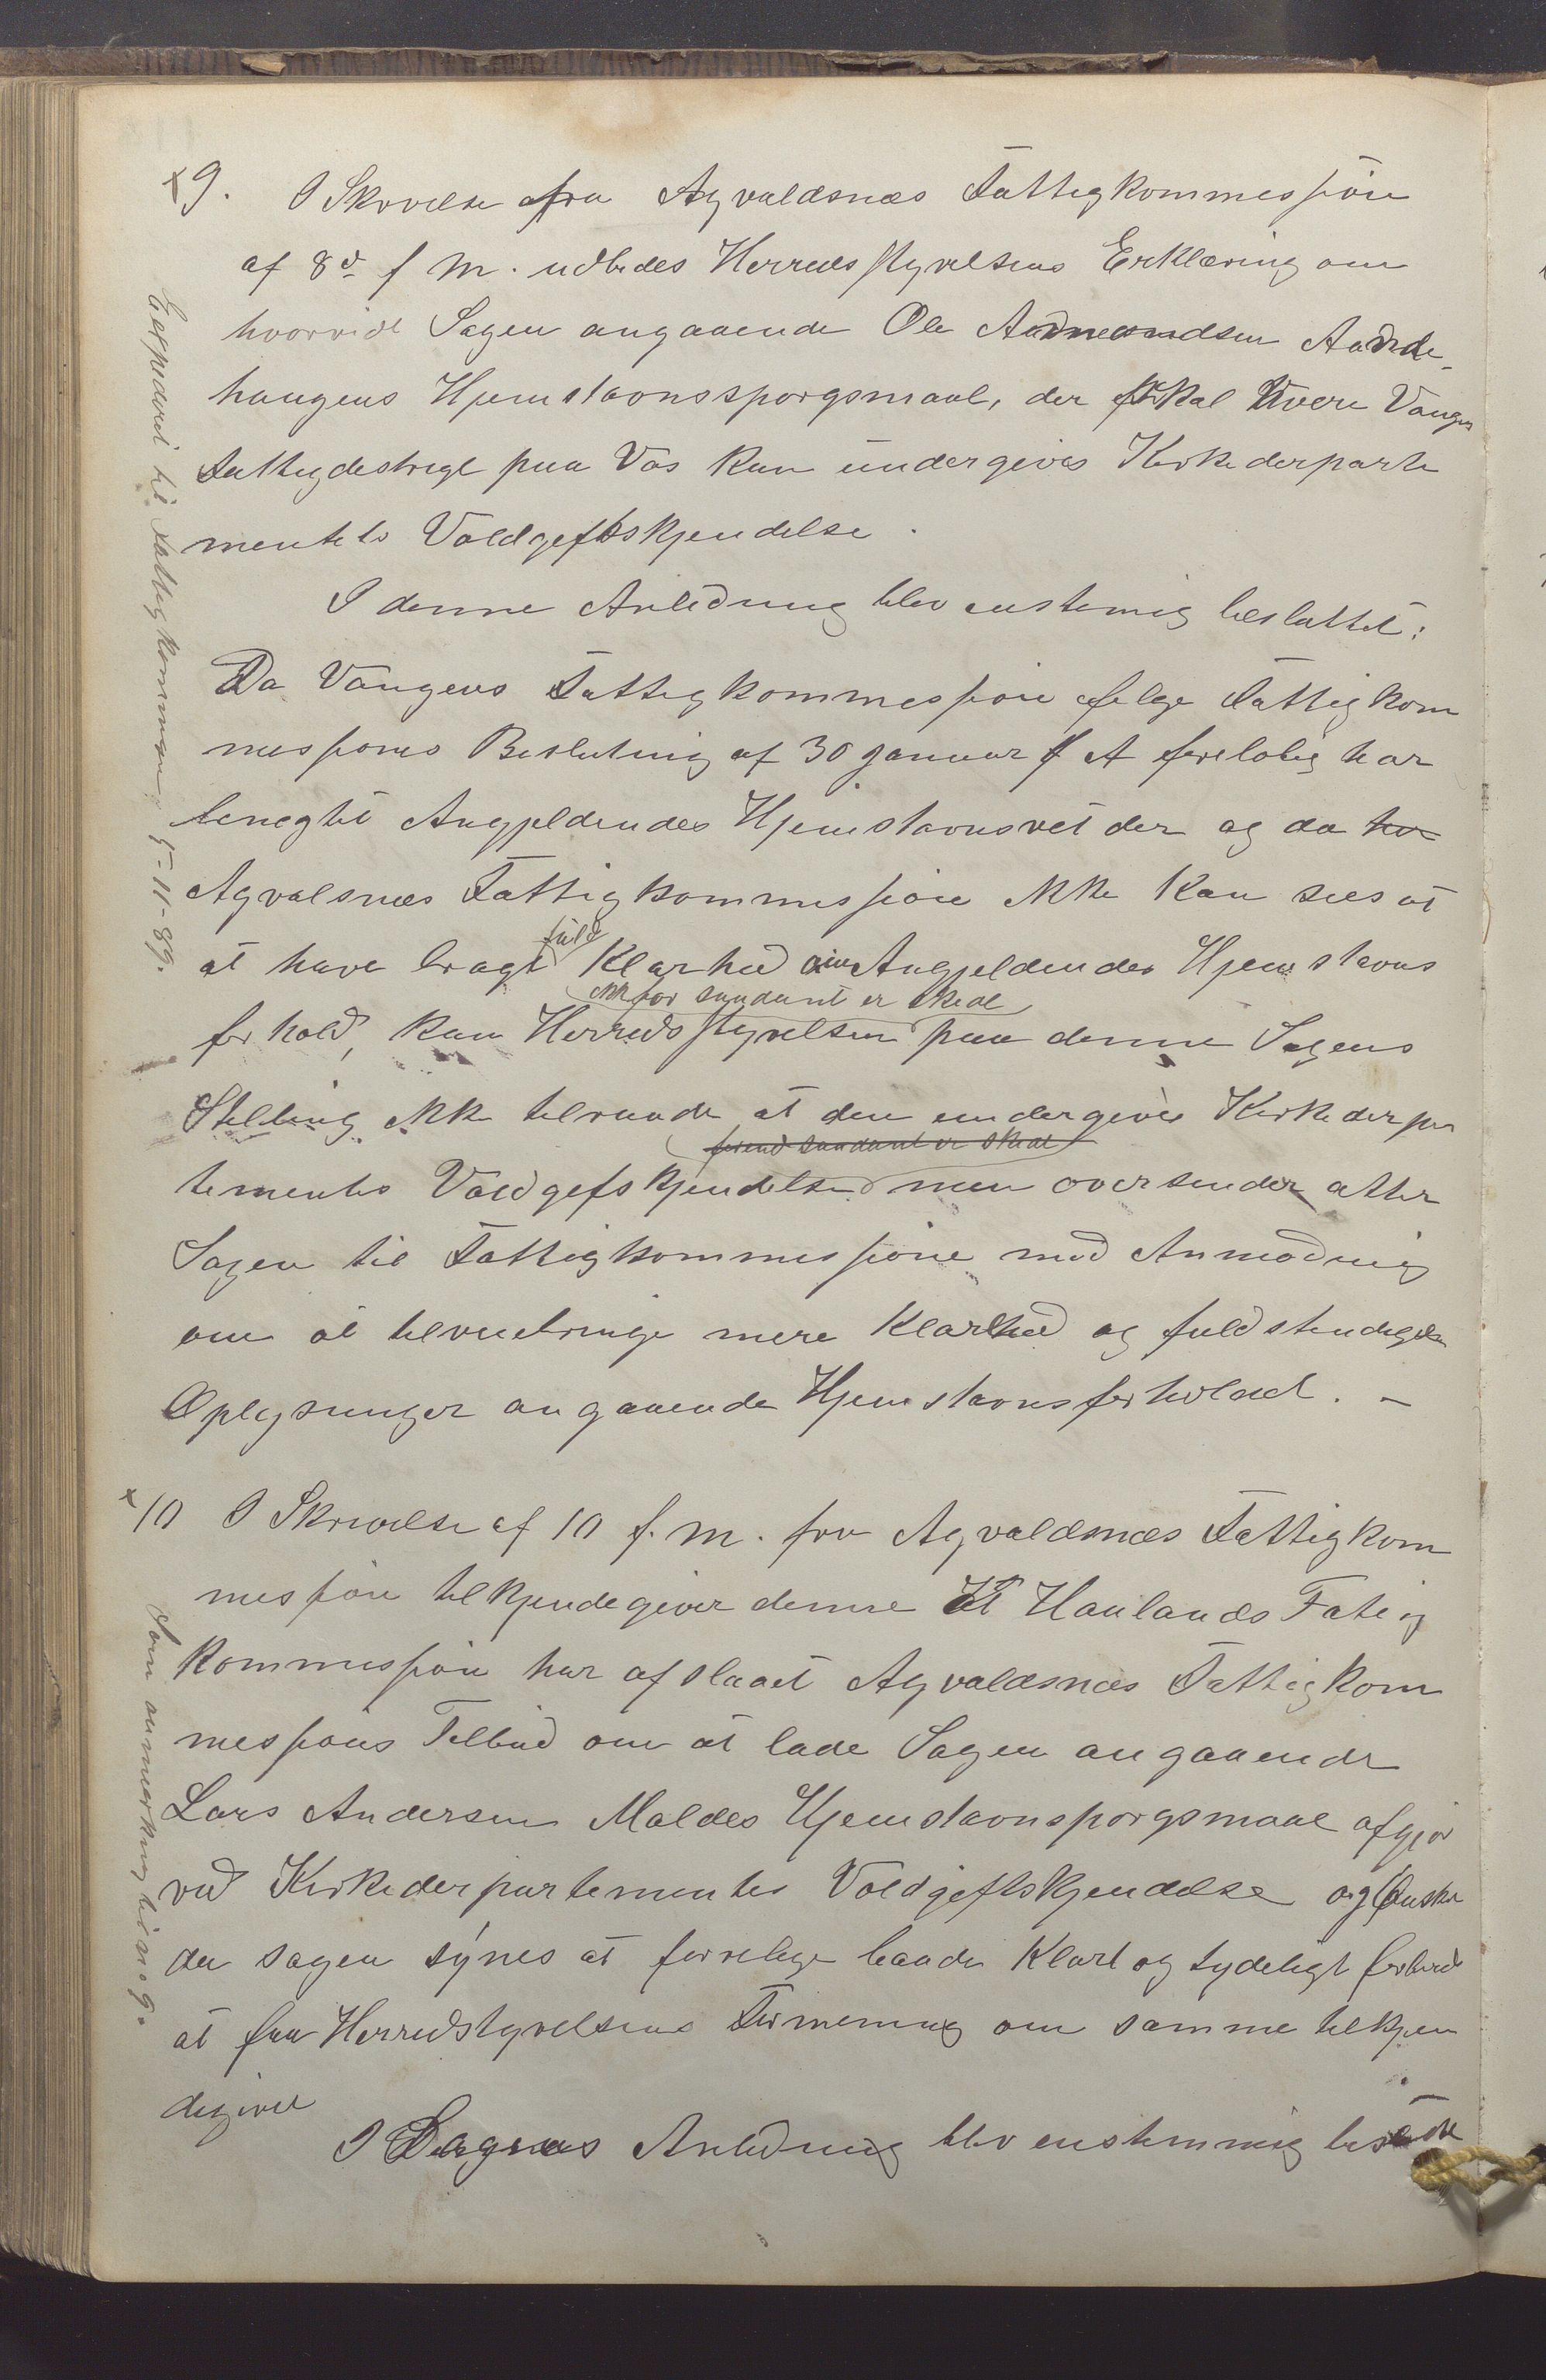 x9. I Skrivelse fra Agvaldsnæs Fattigkommission
af 8d f M. udbedes Herredsstyrelsens Erklæring om
hvorvidt Sagen angaaende Ole Aadnesundsen Aadde-
haugens Hjemstavnsspørgsmaal, der skal være Vangs
Fattigdestrigt paa Vos kan undergives Kirkederparte
mentets Voldgiftskjendelse.
I denne Anledning blev enstemig besluttet:
Da Vangens Fattigkommission ifølge Fattigkom
missions Beslutning af 30 Januar f A foreløbig har
benegtet Angjeldendes Hjemstavnsret der og da
Agvalsnæs Fattigkommission ikke kan sees at
at have bragt fuld Klarhed i Angjeldendes Hjemstavns
forhold, kan Herredsstyrelsen før saadant er skedt paa denne Sagens
Stilling ikke tilraade at den undergives Kirkederpar
tementes Voldgifskjendelse førend saadant er skedt men oversender atter
Sagen til Fattigkommissione med Anmodning
om at tilveiebringe mere Klarhed og fuldstendige
Oplysninger angaaende Hjemstavnsforholdet. -
x10 I Skrivelse af 10 f. M. fra Agvaldsnæs Fattigkom
mission tilkjendegiver denne at Haulands Fatig
kommission har afslaaet Agvaldsnæs Fattigkom
missions Tilbud om at lade Sagen angaaende
Lars Andersen Maldes Hjemstavnsporgsmaal afgjør
ved Kirkederpartementes Voldgiftskjendelse og Ønsker
da sagen synes at foreligge baade Klart og tydeligt
at faa Herredstyrelsens Formening om samme tilkjen
degivet
I Dagens Anledning blev enstemmig
Expederet til Fattigkommission 5-11-89.
Som anmerkning til no 9.